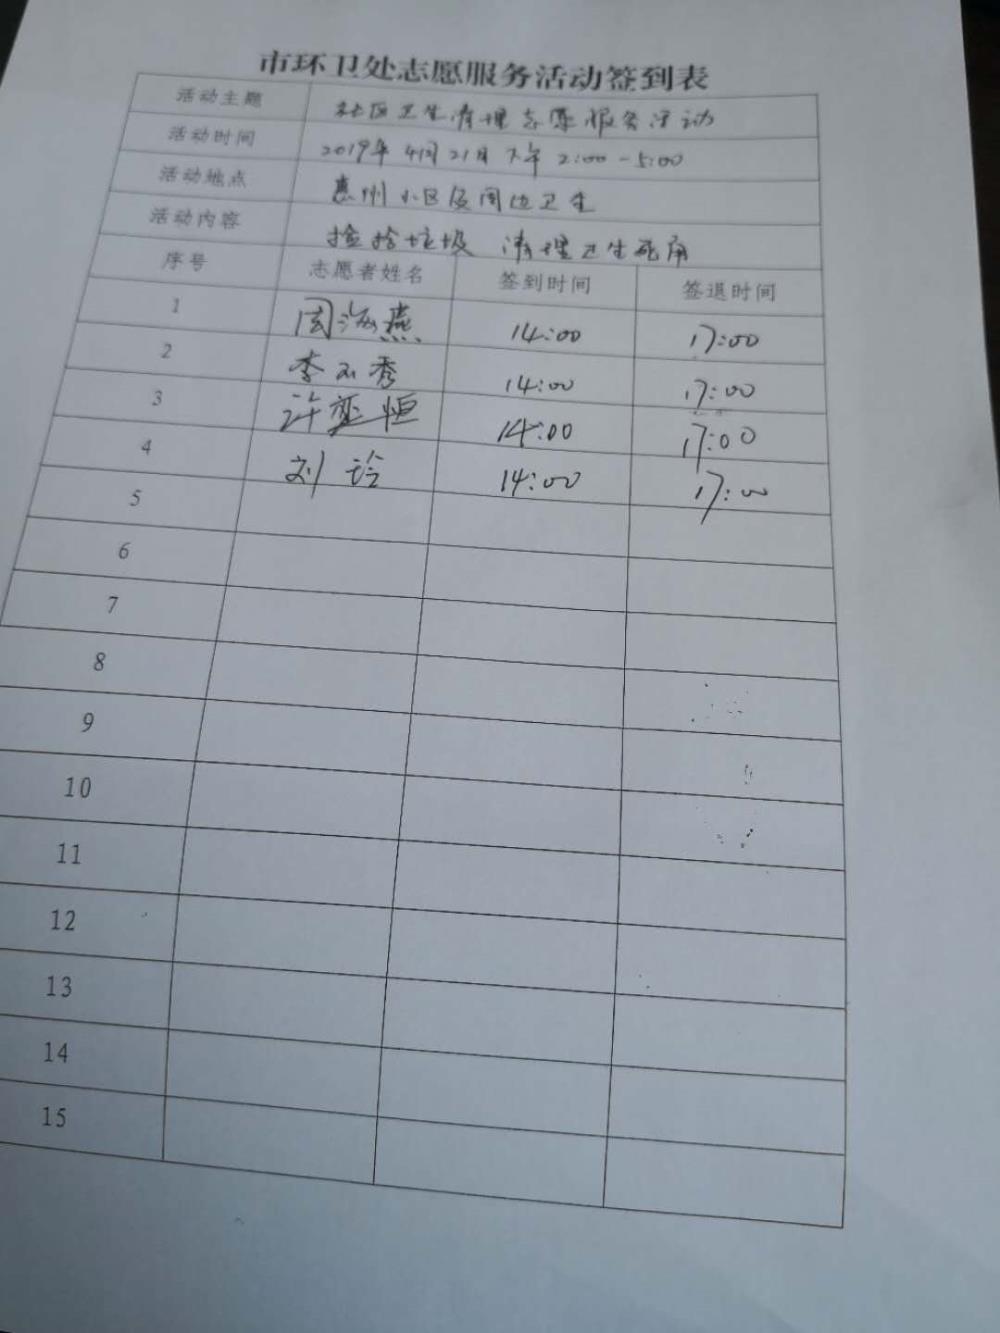 市环卫处志愿服务活动签到表
活动主题 社区卫生清理志愿服务活动
活动时间 2019年4月21日下午2:00-5:00
活动地点 惠州小区及周边卫生
活动内容 捡拾垃圾 清理卫生死角
序号 志愿者姓名 签到时间 签退时间
1 周海燕 14:00 17:00
2 李秀 14:00 17:00
3 许恒 14:00 17:00
4 刘玲 14:00 17:00
5
6
7
8
9
10
11
12
13
14
15